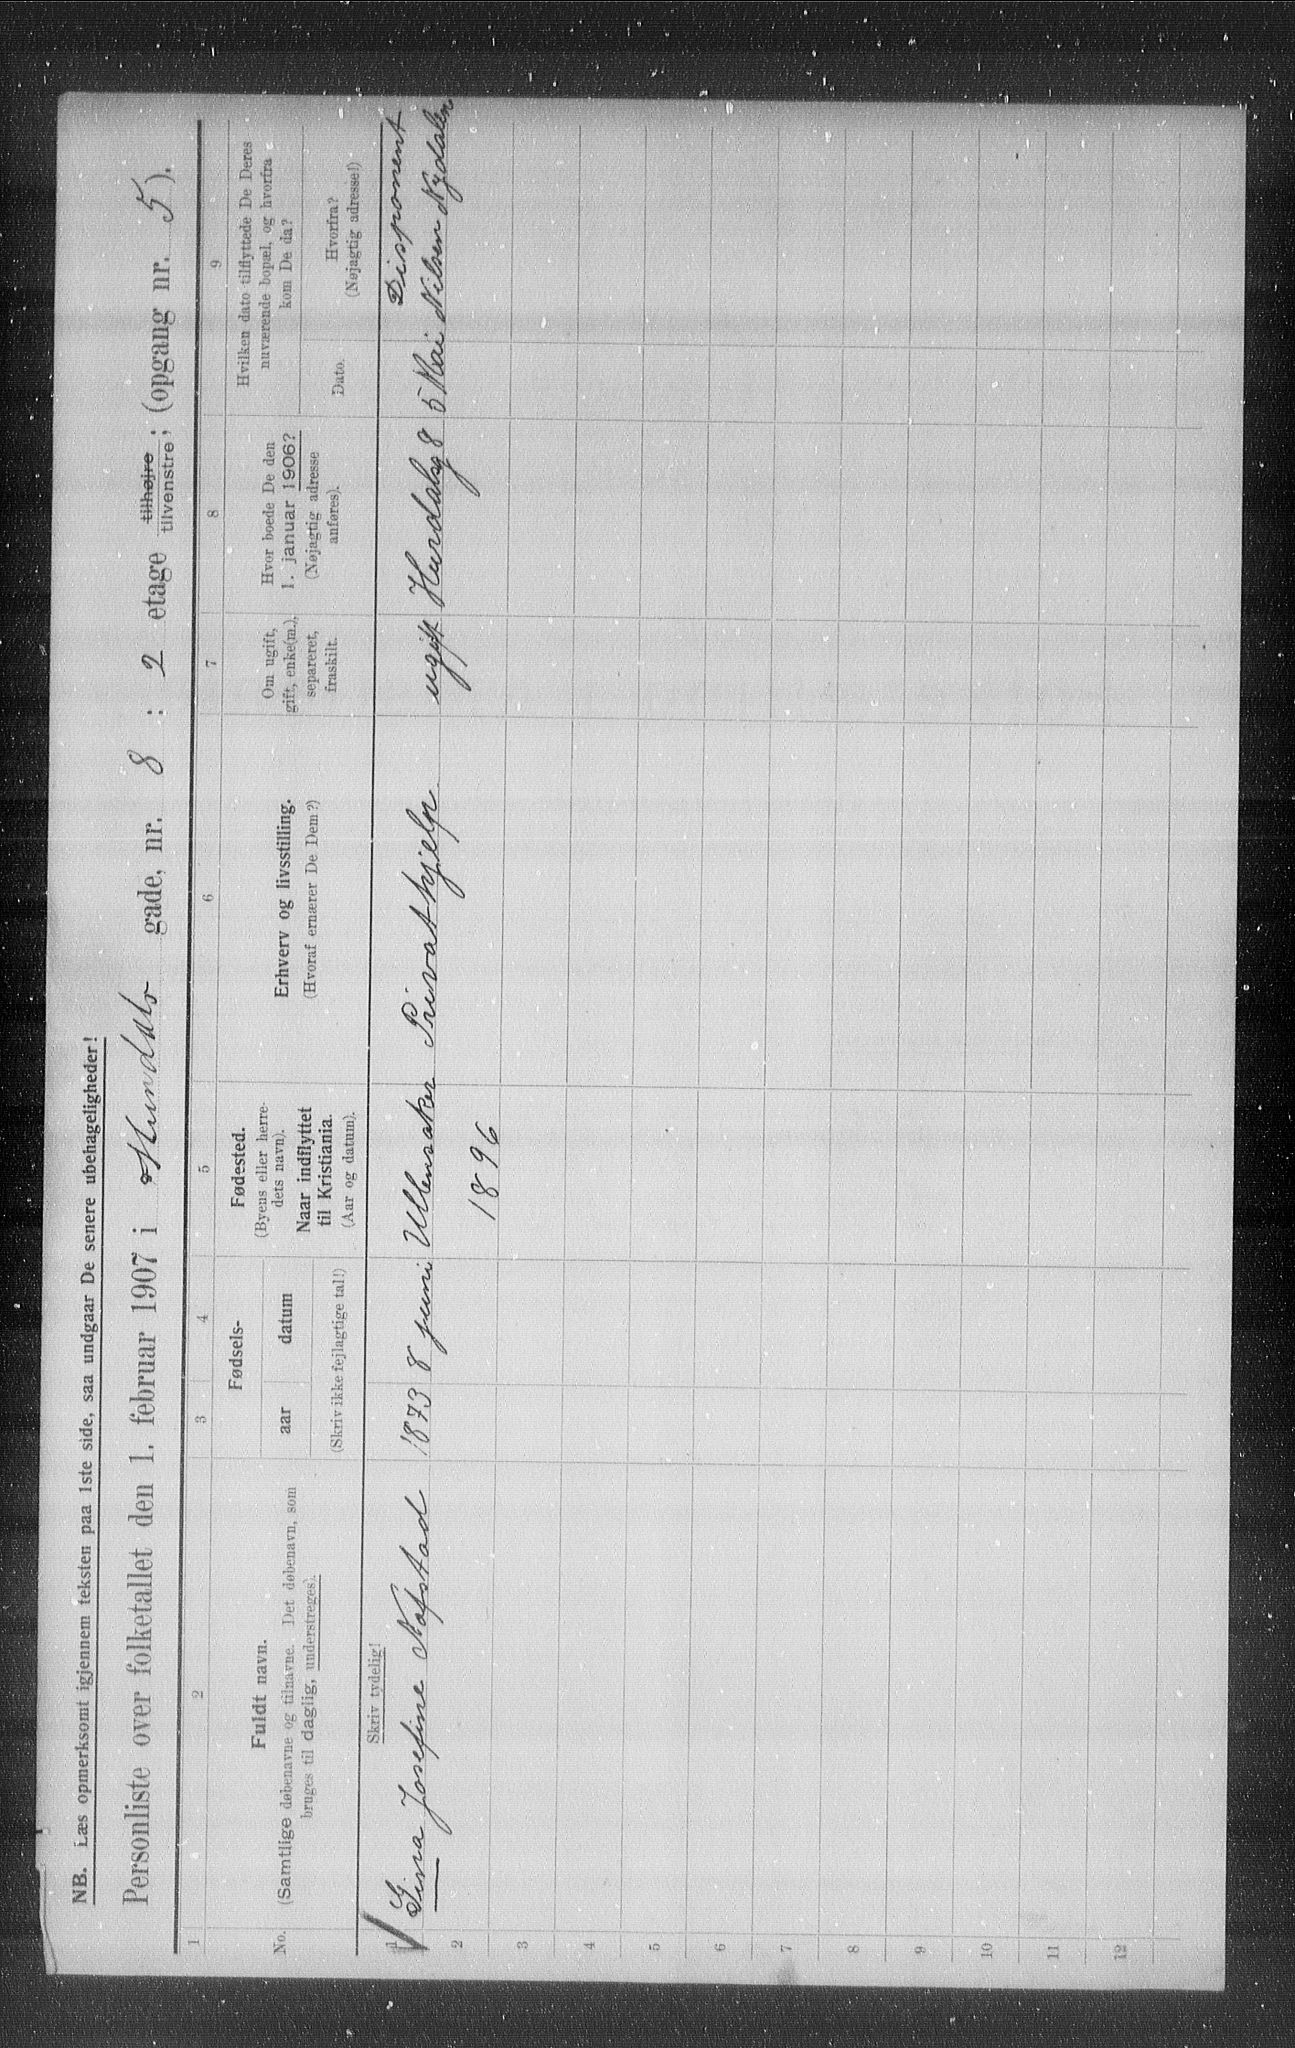 NB. Læs opmerksomt igjennem teksten paa 1ste side, saa undgaar De senere ubehageligheder!
Personliste over folketallet den 1. februar 1907 i Hurdals gade, nr. 8 : 2 etage tilhøjre tilvenstre ; (opgang nr. 5).
1 2 3 4 5 6 7 8 9
No.
Fuldt navn.
(Samtlige døbenavne og tilnavne. Det døbenavn, som
bruges til daglig, understreges).
Skriv tydelig!
Fødsels-
aar datum
(Skriv ikke fejlagtige tal!)
Fødested.
(Byens eller herre-
dets navn).
Naar indflyttet
til Kristiania.
(Aar og datum).
Erhverv og livsstilling.
(Hvoraf ernærer De Dem?)
Om ugift,
gift, enke(m.),
separeret,
fraskilt.
Hvor boede De den
1. januar 1906?
(Nøjagtig adresse
anføres).
Hvilken dato tilflyttede De Deres
nuværende bopæl, og hvorfra
kom De da?
Dato.
Hvorfra?
(Nøjagtig adresse!)
Disponent
1 Gina Josefine Nafstad 1873 8 juni Ullensaker Privat hjelp ugift Hurdalsg 8 5 Mai Nilsen Nydalen
2 1896
3
4
5
6
7
8
9
10
11
12